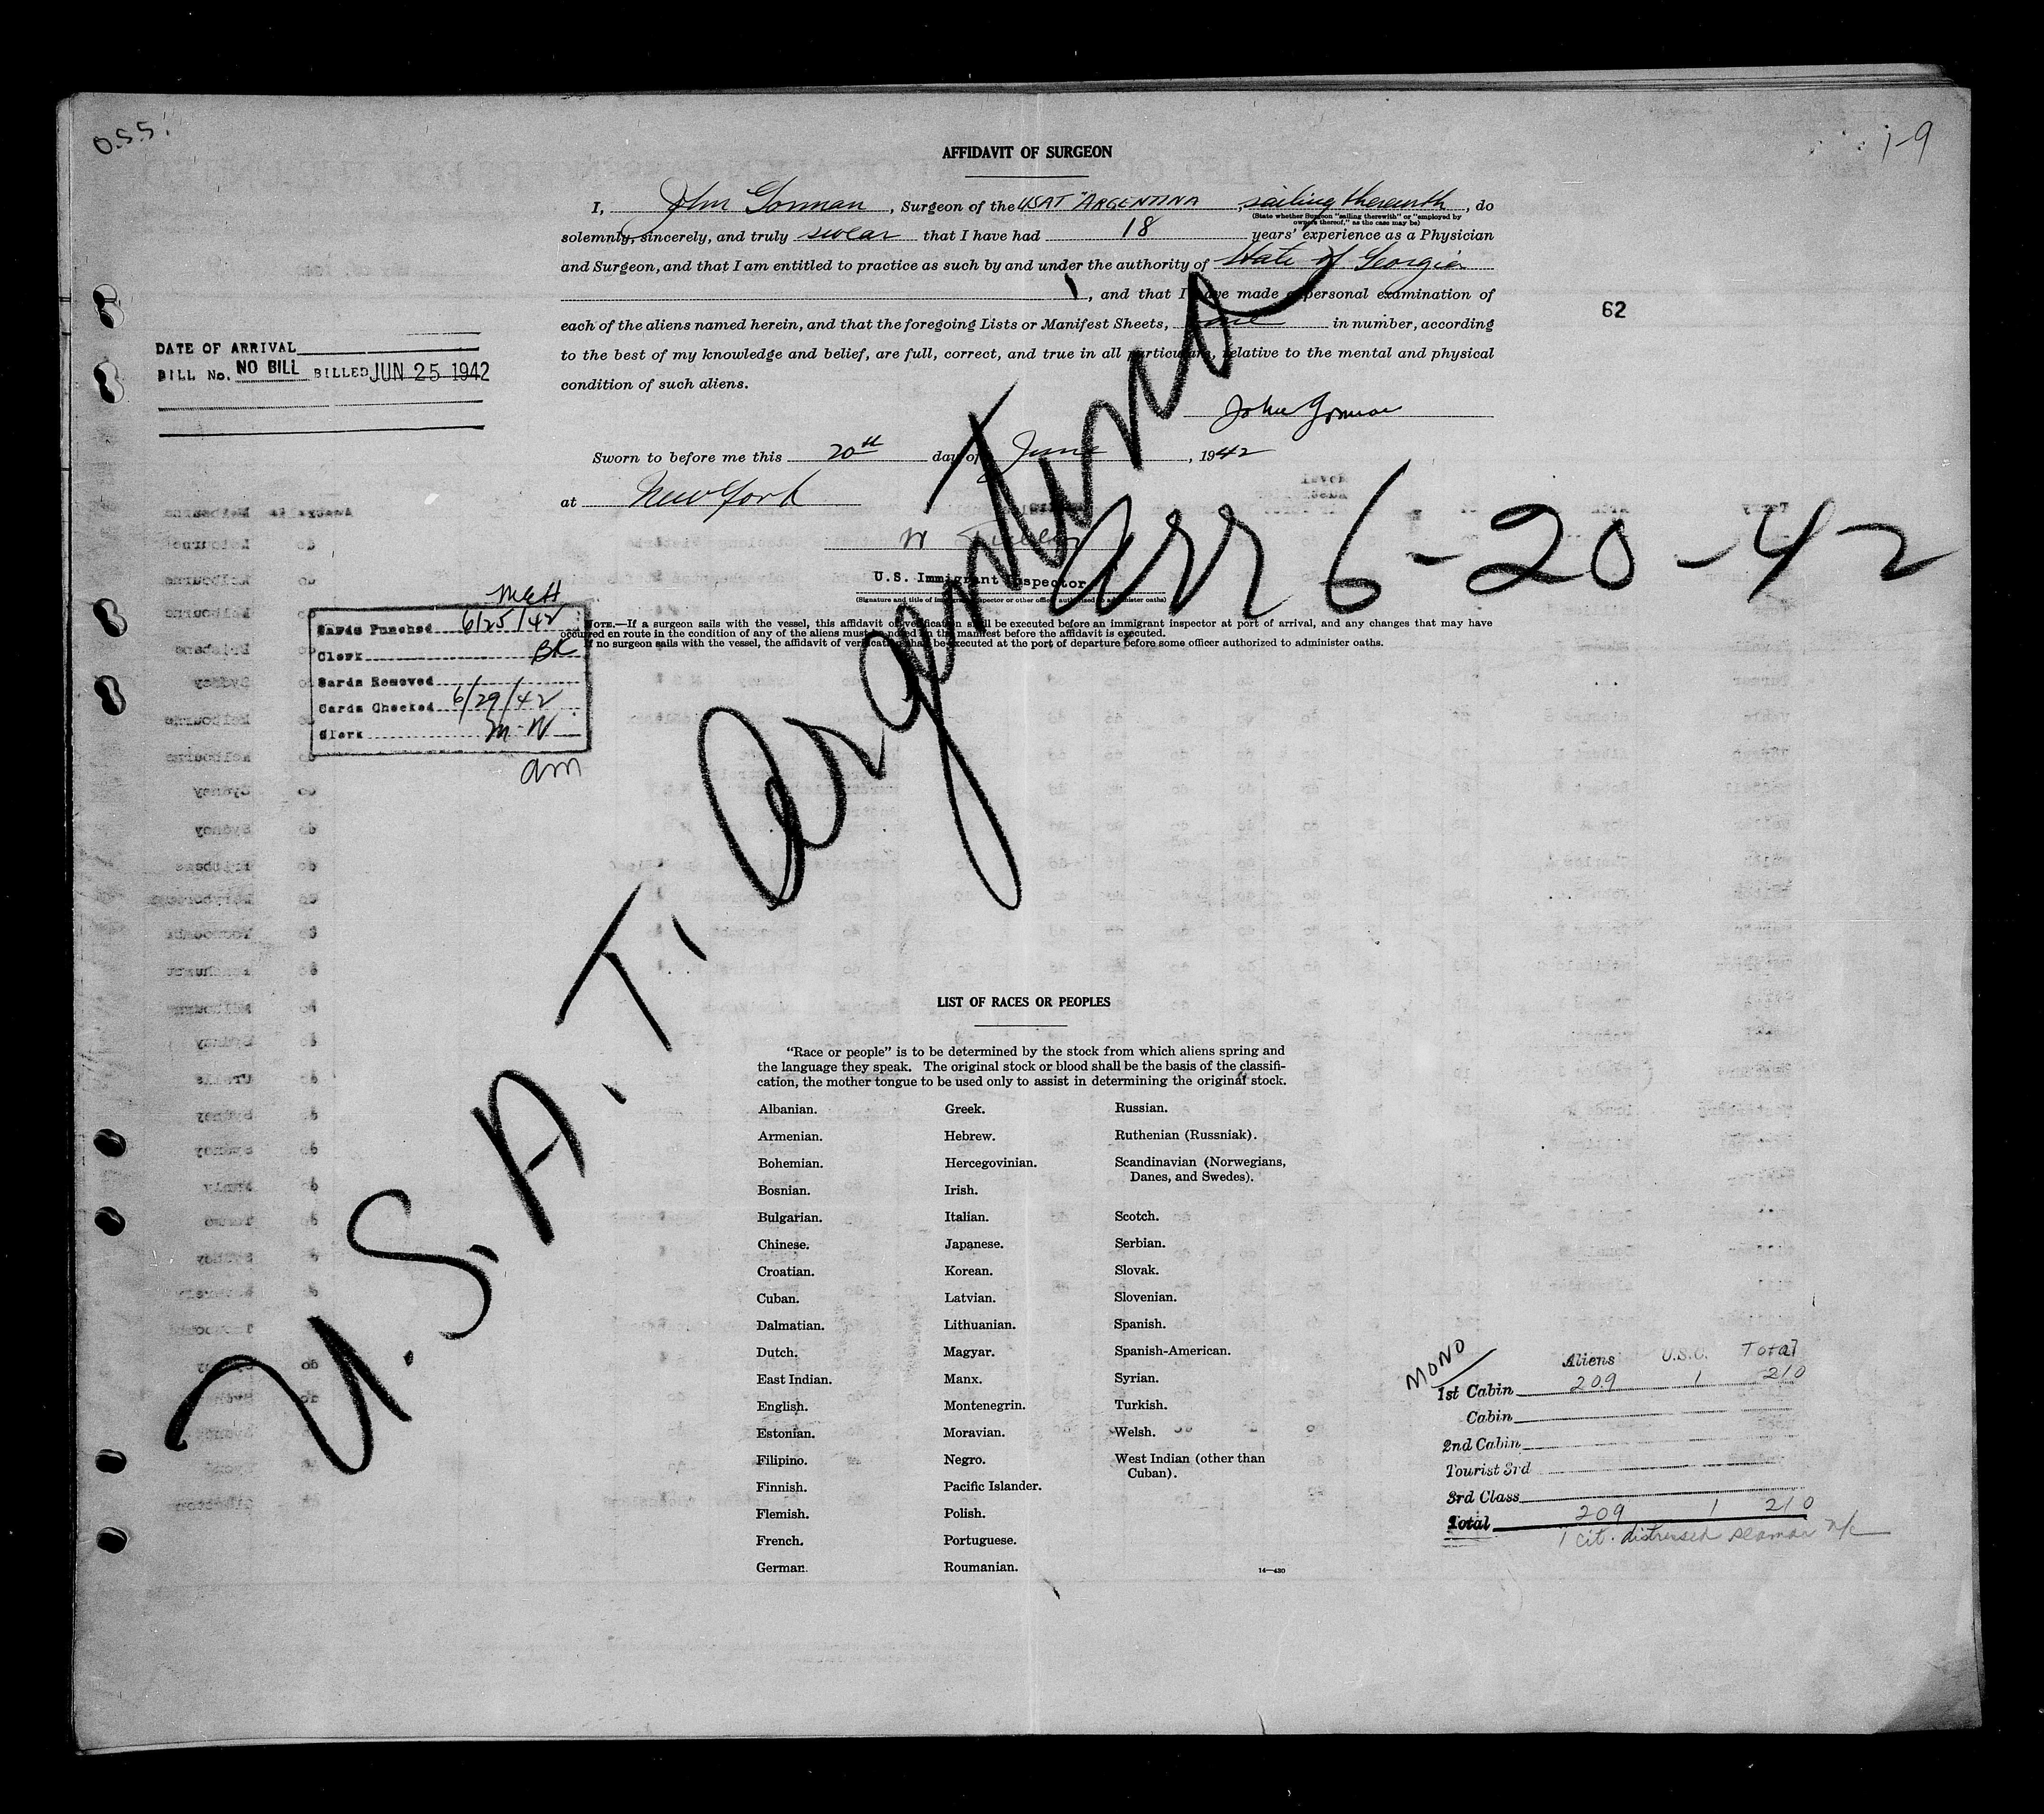 O.S.S.
1-9
AFFIDAVIT OF SURGEON
I, John Gorman, Surgeon of the USAT "ARGENTINA, sailing therewith, do
(State whether Surgeon "sailing therewith" or "employed by
owners thereof," as the case may be)
solemnly, sincerely, and truly swear that I have had 18 years' experience as a Physician
and Surgeon, and that I am entitled to practice as such by and under the authority of State of Georgia
, and that I have made a personal examination of
62
each of the aliens named herein, and that the foregoing Lists or Manifest Sheets, one in number, according
to the best of my knowledge and belief, are full, correct, and true in all particulars, relative to the mental and physical
condition of such aliens.
DATE OF ARRIVAL
BILL No. NO BILL BILLED JUN 25 1942
John Gorman
Sworn to before me this 20th day of June, 1942
at New York
U.S. Immigrant Inspector
(Signature and title of immigrant inspector or other officer authorized to administer oaths)
NOTE.—If a surgeon sails with the vessel, this affidavit of verification shall be executed before an immigrant inspector at port of arrival, and any changes that may have
occurred en route in the condition of any of the aliens must be noted on the manifest before the affidavit is executed.
If no surgeon sails with the vessel, the affidavit of verification shall be executed at the port of departure before some officer authorized to administer oaths.
U.S.A.T. Argentina
Arr 6-20-42
Cards Punched 6/25/42
Clerk BK
Cards Removed
Cards Checked 6/29/42
Clerk M-W
am
LIST OF RACES OR PEOPLES
"Race or people" is to be determined by the stock from which aliens spring and
the language they speak. The original stock or blood shall be the basis of the classifi-
cation, the mother tongue to be used only to assist in determining the original stock.
Albanian. Greek. Russian.
Armenian. Hebrew. Ruthenian (Russniak).
Bohemian. Hercegovinian. Scandinavian (Norwegians,
Danes, and Swedes).
Bosnian. Irish.
Bulgarian. Italian. Scotch.
Chinese. Japanese. Serbian.
Croatian. Korean. Slovak.
Cuban. Latvian. Slovenian.
Dalmatian. Lithuanian. Spanish.
Dutch. Magyar. Spanish-American.
East Indian. Manx. Syrian.
English. Montenegrin. Turkish.
Estonian. Moravian. Welsh.
Filipino. Negro. West Indian (other than
Cuban).
Finnish. Pacific Islander.
Flemish. Polish.
French. Portuguese.
German. Roumanian.
14—430
MONO
Aliens U.S.C. Total
1st Cabin 209 1 210
Cabin
2nd Cabin
Tourist 3rd
3rd Class
Total 209 1 210
1 cit. distressed seaman n/c